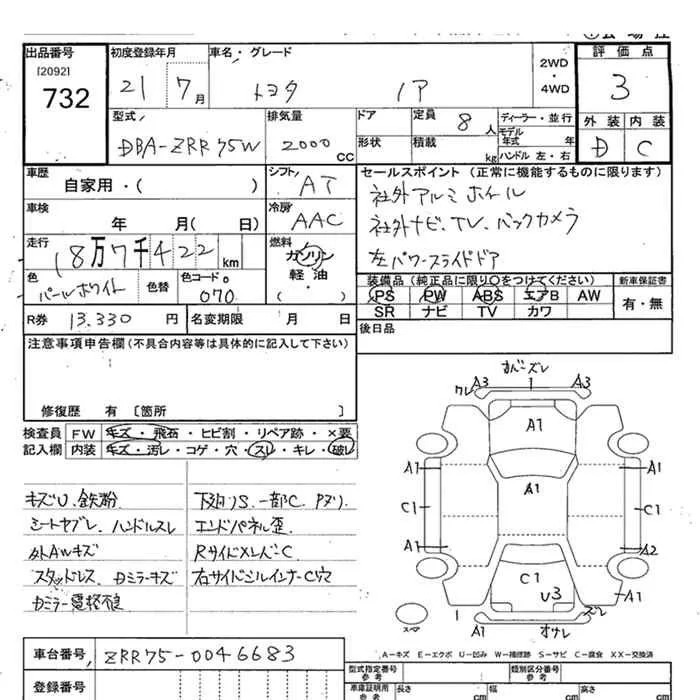 出品番号
[2092]
732
初度登録年月
21 7月
車名・グレード
トヨタ ノア
2WD
・
4WD
評価点
3
型式
DBA-ZRR75W
排気量
2000 CC
ドア
形状
定員 8人
積載 kg
ディーラー・並行
モデル年式 年
ハンドル 左・右
外装 内装
D C
車歴
自家用・( )
シフト
AT
車検
年 月( 日)
冷房
AAC
走行
18万7千422km
燃料
ガソリン
軽油
・
( )
色
パールホワイト
色替
色コードo
070
R券 13.330 円
名変期限 月 日
セールスポイント (正常に機能するものに限ります)
社外アルミホイール
社外ナビ、TV、バックカメラ
左パワースライドドア
装備品 (純正品に限り○をつけてください)
PS PW ABS エアB AW
SR ナビ TV カワ
新車保証書
有・無
後日品
注意事項申告欄(不具合内容等は具体的に記入して下さい)
修復歴 有 〔箇所 〕
検査員
記入欄
FW キズ・飛石・ヒビ割・リペア跡・×要
内装 キズ・汚レ・コゲ・穴・スレ・キレ・破レ
キズU、鉄粉
シートヤブレ、ハンドルスレ
外AWキズ
スタッドレス、カミラーキズ
カミラー電格不良
下廻りS、一部C、Pヌリ
エンドパネル歪
RサイドメンバーC
右サイドシルインナーC穴
A3 1 A3
A1
A1
A1 A1
C1 C1
A1 A2
C1
U3
A1
ズレ
1
A1
オサレ
スペア
A－キズ E－エクボ U－凹み W－補修跡 S－サビ C－腐食 XX－交換済
車台番号 ZRR75-0046683
登録番号
型式指定番号
参考
類別区分番号
参考
車庫証明用
参考
長さ cm
幅 cm
高さ cm